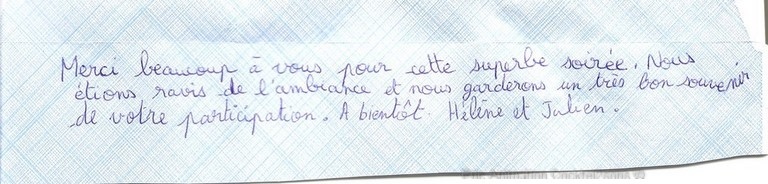 Merci beaucoup à vous pour cette superbe soirée. Nous
étions ravis de l'ambiance et nous garderons un très bon souvenir
de votre participation. A bientôt. Hélène et Julien.